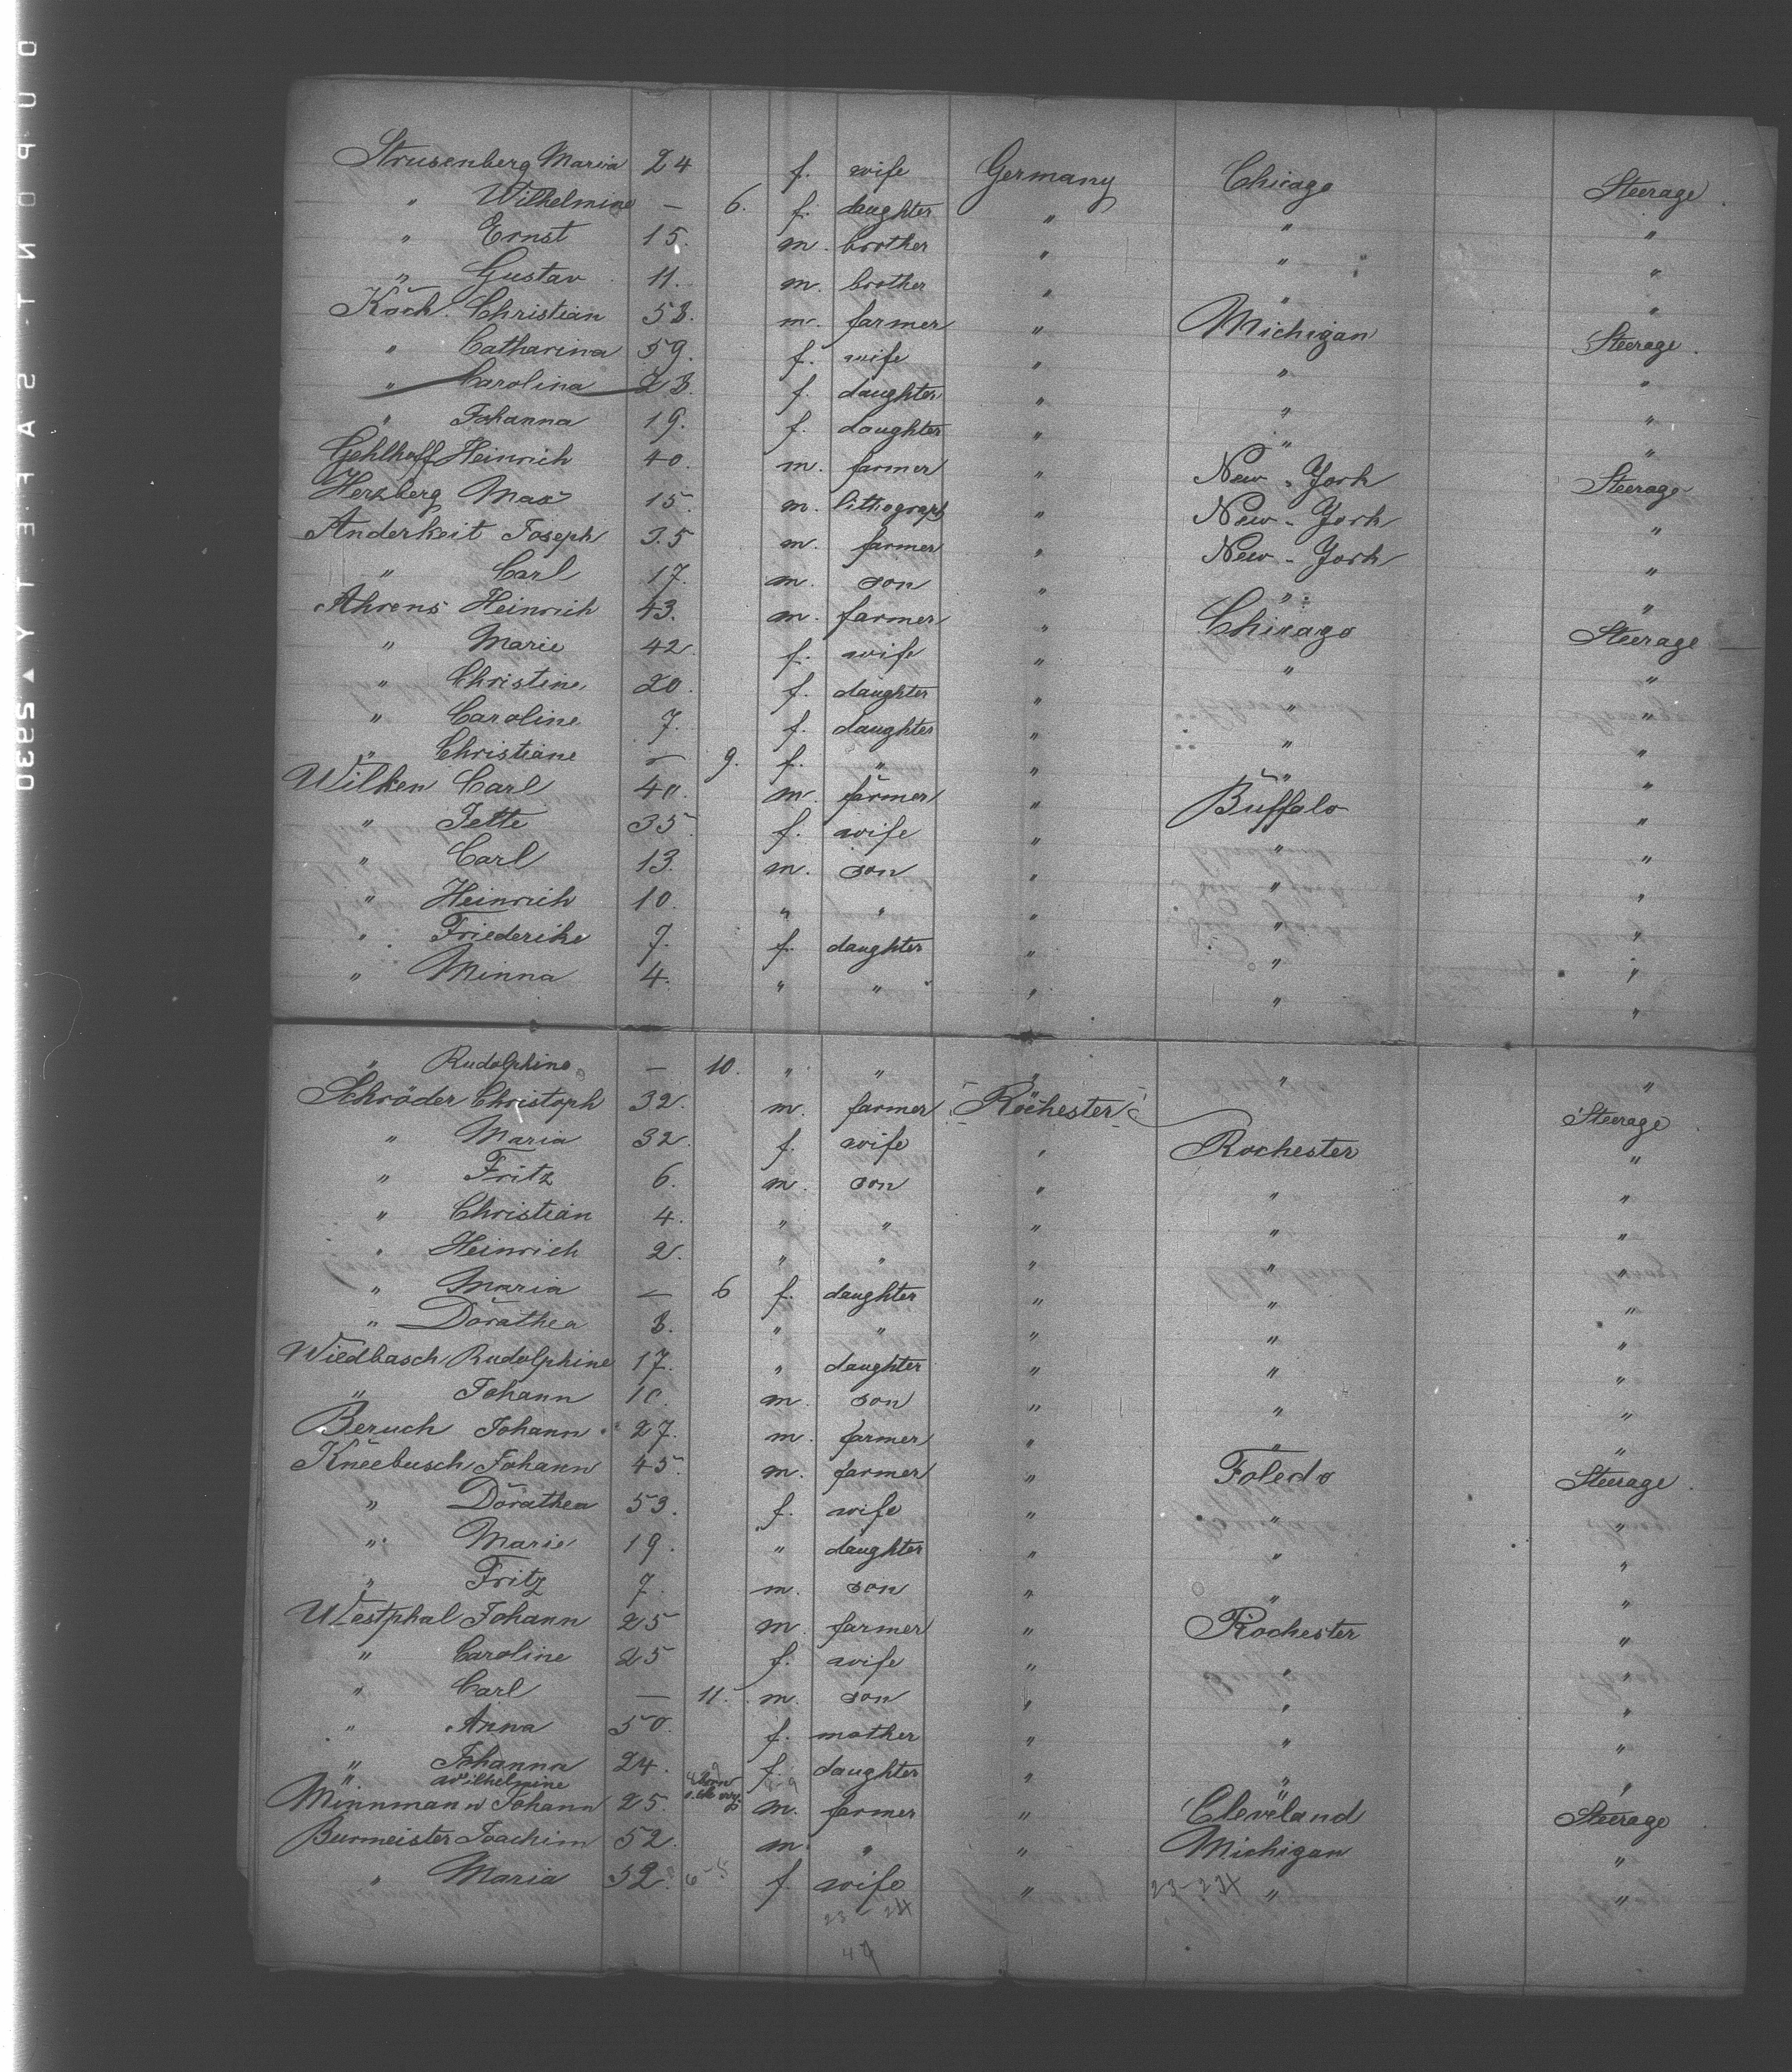 Strusenberg Maria 24 f. wife Germany Chicago Steerage.
" Wilhelmine — 6. f. daughter " " "
" Ernst 15. m. brother " " "
" Gustav 11. m. brother " " "
Koch Christian 58. m. farmer " Michigan Steerage.
" Catharina 59. f. wife " " "
" Carolina 23. f. daughter " " "
" Johanna 19. f. daughter " " "
Gehlhoff Heinrich 40. m. farmer " New-York Steerage
Herzberg Max 15. m. lithograph " New-York "
Anderheit Joseph 35 m. farmer " New-York "
" Carl 17. m. son " " "
Ahrens Heinrich 43. m. farmer " Chicago Steerage
" Marie 42. f. wife " " "
" Christine 20. f. daughter " " "
" Caroline 7. f. daughter " " "
" Christiane — 9. f. " " " "
Wilken Carl 40. m. farmer " Buffalo "
" Jette 35. f. wife " " "
" Carl 13. m. son " " "
" Heinrich 10. " " " " "
" Friederike 7. f. daughter " " "
" Minna 4. " " " " "
" Rudolphine — 10. " " " " "
Schröder Christoph 32. m. farmer Rochester Steerage
" Maria 32. f. wife " Rochester "
" Fritz 6. m. son " " "
" Christian 4. " " " " "
" Heinrich 2. " " " " "
" Maria — 6 f. daughter " " "
" Dorathea 3. " " " " "
Wiedbasch Rudolphine 17. " daughter " " "
" Johann 10. m. son " " "
Beruch Johann 27. m. farmer " " "
Kneebusch Johann 45. m. farmer " Toledo Steerage.
" Dorathea 53. f. wife " " "
" Marie 19. " daughter " " "
" Fritz 7. m. son " " "
Westphal Johann 25 m. farmer " Rochester "
" Caroline 25 f. wife " " "
" Carl — 11. m. son " " "
" Anna 50. f. mother " " "
" Johanna 24. f. daughter " " "
" Wilhelmine born
Minnmann Johann 25. m. farmer " Cleveland Steerage
Burmeister Joachim 52. m. " " Michigan "
" Maria 52. f. wife " 23-24 " "
23-24
47
0325 ▲ Y T E F A S · T · N O P U D